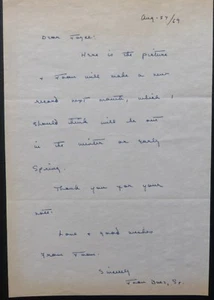 Aug-27/69
Dear Joyce:
Here is the picture
& Juan will make a new
record next month, which I
should think will be out
in the winter or early
Spring.
Thank you for your
note.
Love & good wishes
from Juan.
Sincerely